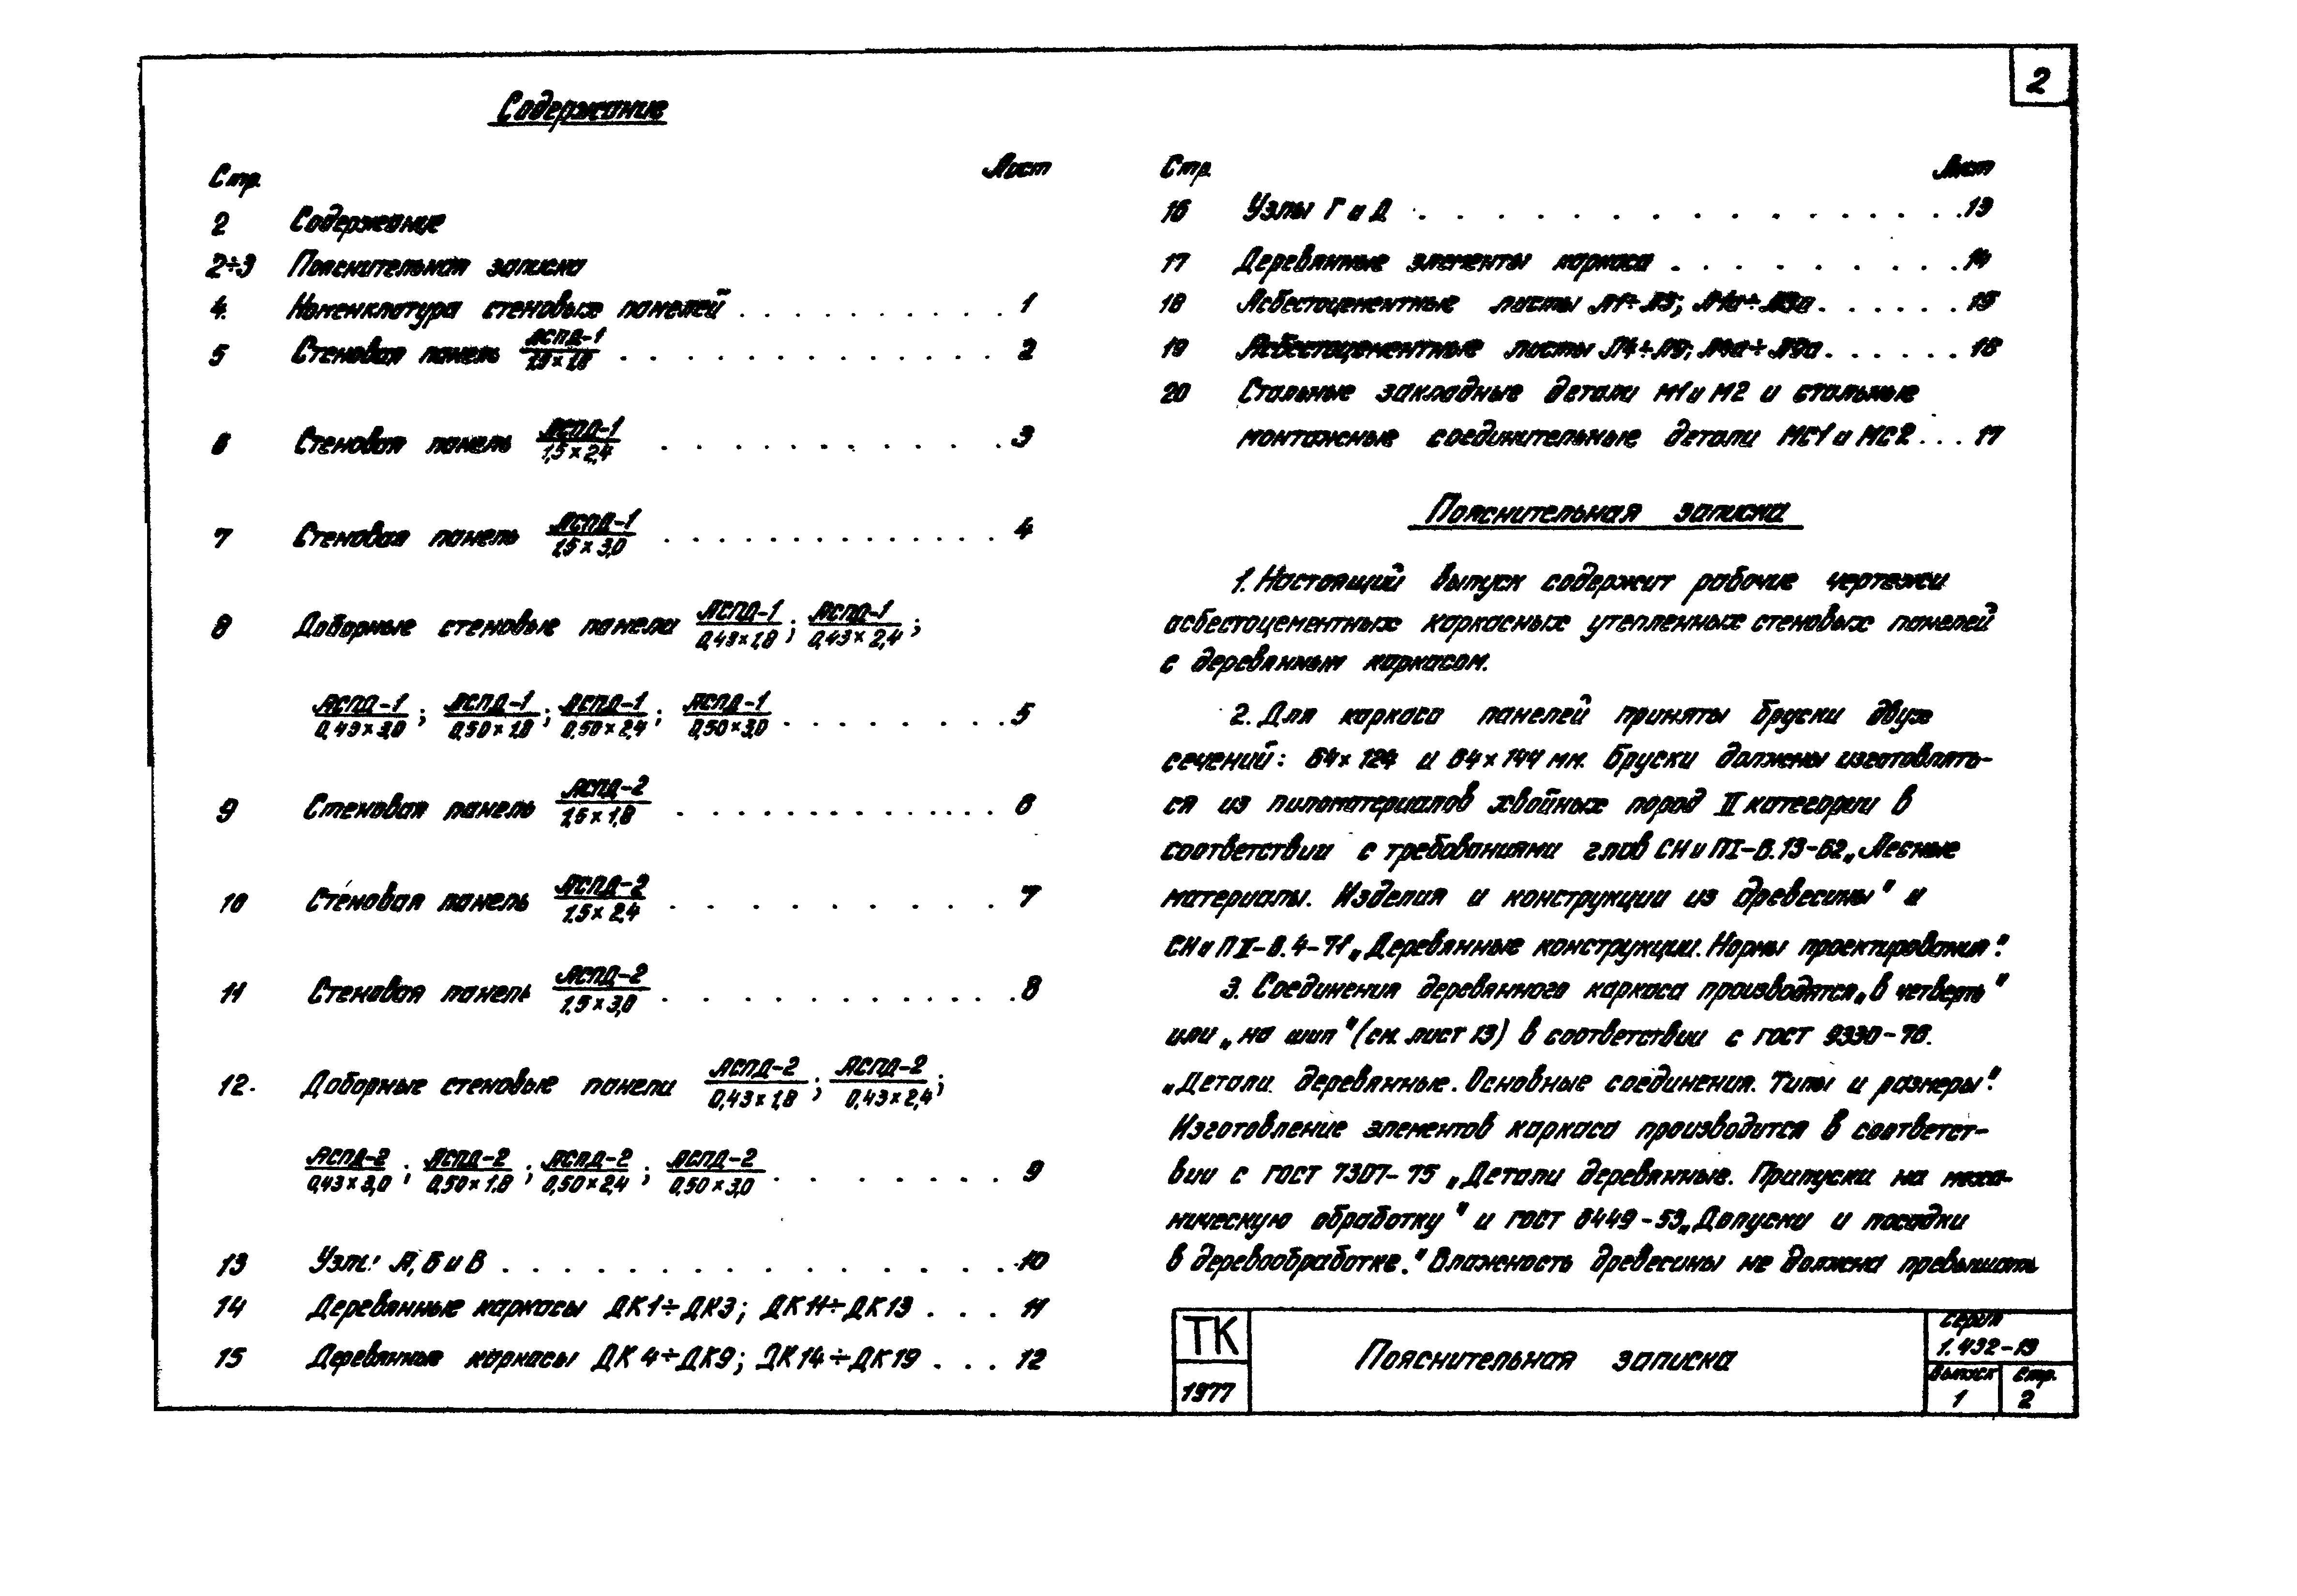 2
Содержание
Стр. Лист
2 Содержание
2÷3 Пояснительная записка
4. Номенклатура стеновых панелей . . . . . . . . . . . 1
5 Стеновая панель АСПД-1/1,5×1,8 . . . . . . . . . . . . . . 2
6 Стеновая панель АСПД-1/1,5×2,4 . . . . . . . . . . . 3
7 Стеновая панель АСПД-1/1,5×3,0 . . . . . . . . . . . . . . 4
8 Доборные стеновые панели АСПД-1/0,43×1,8; АСПД-1/0,43×2,4;
АСПД-1/0,43×3,0; АСПД-1/0,50×1,8; АСПД-1/0,50×2,4; АСПД-1/0,50×3,0 . . . . . . . . 5
9 Стеновая панель АСПД-2/1,5×1,8 . . . . . . . . . . . . . . 6
10 Стеновая панель АСПД-2/1,5×2,4 . . . . . . . . . . . 7
11 Стеновая панель АСПД-2/1,5×3,0 . . . . . . . . . . . . . . 8
12. Доборные стеновые панели АСПД-2/0,43×1,8; АСПД-2/0,43×2,4;
АСПД-2/0,43×3,0; АСПД-2/0,50×1,8; АСПД-2/0,50×2,4; АСПД-2/0,50×3,0 . . . . . . . 9
13 Узлы А, Б и В . . . . . . . . . . . . . . . . 10
14 Деревянные каркасы ДК1÷ДК3; ДК11÷ДК13 . . . 11
15 Деревянные каркасы ДК4÷ДК9; ДК14÷ДК19 . . . 12
Стр. Лист
16 Узлы Г и Д . . . . . . . . . . . . . . . 13
17 Деревянные элементы каркаса . . . . . . . . . 14
18 Асбестоцементные листы Л1÷Л3; Л1а÷Л3а . . . . . . 15
19 Асбестоцементные листы Л4÷Л9; Л4а÷Л9а . . . . . . 16
20 Стальные закладные детали М1 и М2 и стальные
монтажные соединительные детали МС1 и МС2 . . . 17
Пояснительная записка
1. Настоящий выпуск содержит рабочие чертежи
асбестоцементных каркасных утепленных стеновых панелей
с деревянным каркасом.
2. Для каркаса панелей приняты бруски двух
сечений: 64×124 и 64×144 мм. Бруски должны изготовлять-
ся из пиломатериалов хвойных пород II категории в
соответствии с требованиями глав СНиП I-В.13-62 „Лесные
материалы. Изделия и конструкции из древесины" и
СНиП II-В.4-71 „Деревянные конструкции. Нормы проектирования".
3. Соединения деревянного каркаса производятся „в четверть"
или „на шип" (см. лист 13) в соответствии с ГОСТ 9330-76.
„Детали деревянные. Основные соединения. Типы и размеры".
Изготовление элементов каркаса производится в соответст-
вии с ГОСТ 7307-75 „Детали деревянные. Припуски на меха-
ническую обработку" и ГОСТ 6449-53 „Допуски и посадки
в деревообработке." Влажность древесины не должна превышать
ТК
1977
Пояснительная записка
Серия
1.432-19
Выпуск
1
Стр.
2